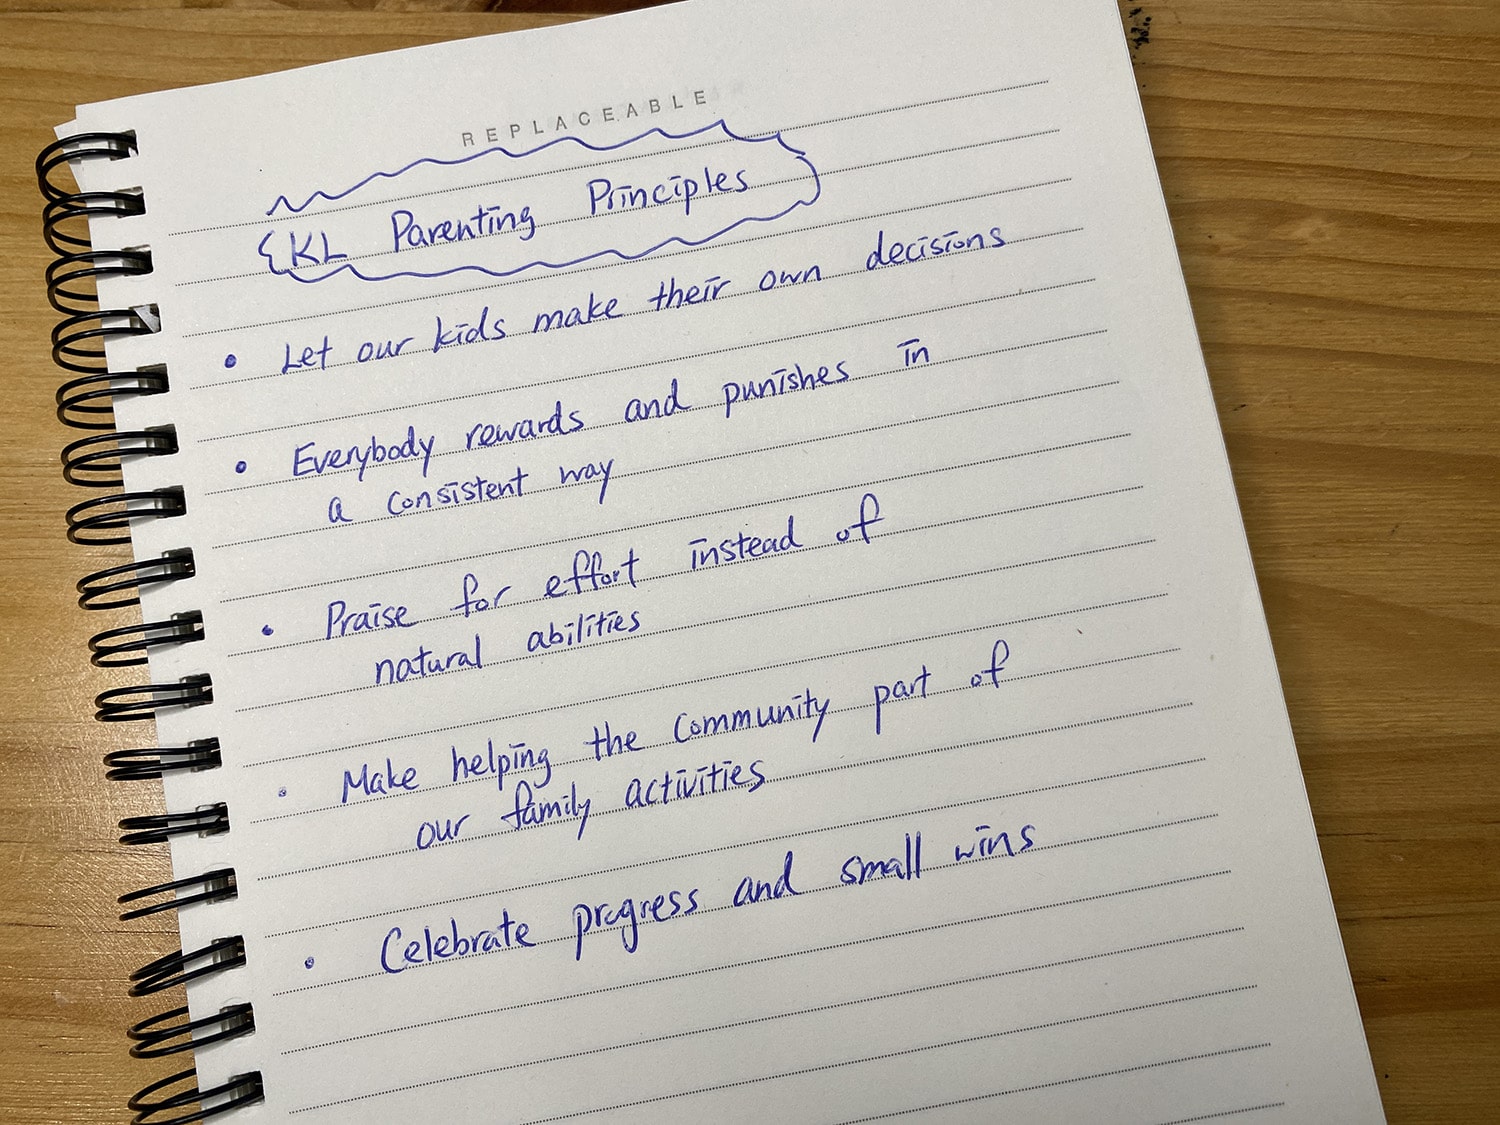 REPLACEABLE
KL Parenting Principles
• Let our kids make their own decisions
• Everybody rewards and punishes in
a consistent way
• Praise for effort instead of
natural abilities
• Make helping the community part of
our family activities
• Celebrate progress and small wins